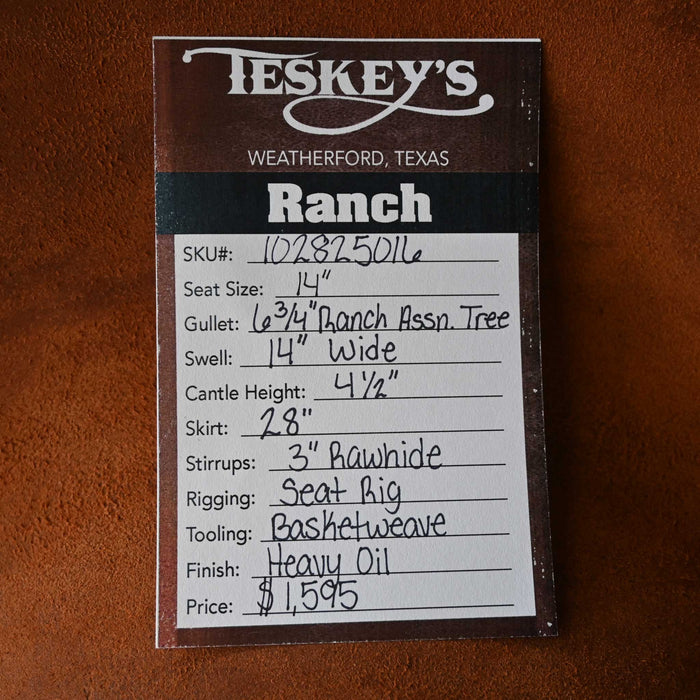 TESKEY'S
WEATHERFORD, TEXAS
Ranch
SKU#: 102825016
Seat Size: 14"
Gullet: 6 3/4" Ranch Assn. Tree
Swell: 14" Wide
Cantle Height: 4 1/2"
Skirt: 28"
Stirrups: 3" Rawhide
Rigging: Seat Rig
Tooling: Basketweave
Finish: Heavy Oil
Price: $1,595